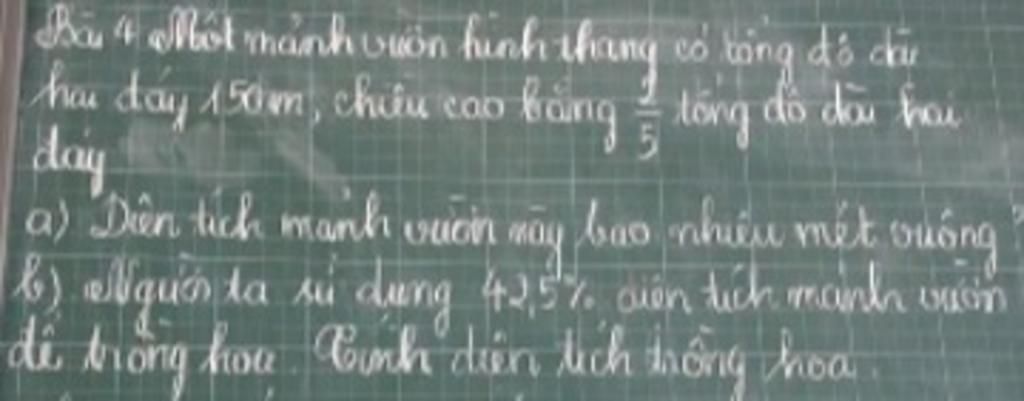 Bài 4 Một mảnh vườn hình thang có tổng độ dài
hai đáy 150m, chiều cao bằng 2/5 tổng độ dài hai
đáy
a) Diện tích mảnh vườn này bao nhiêu mét vuông?
b) Người ta sử dụng 42,5% diện tích mảnh vườn
để trồng hoa. Tính diện tích trồng hoa.